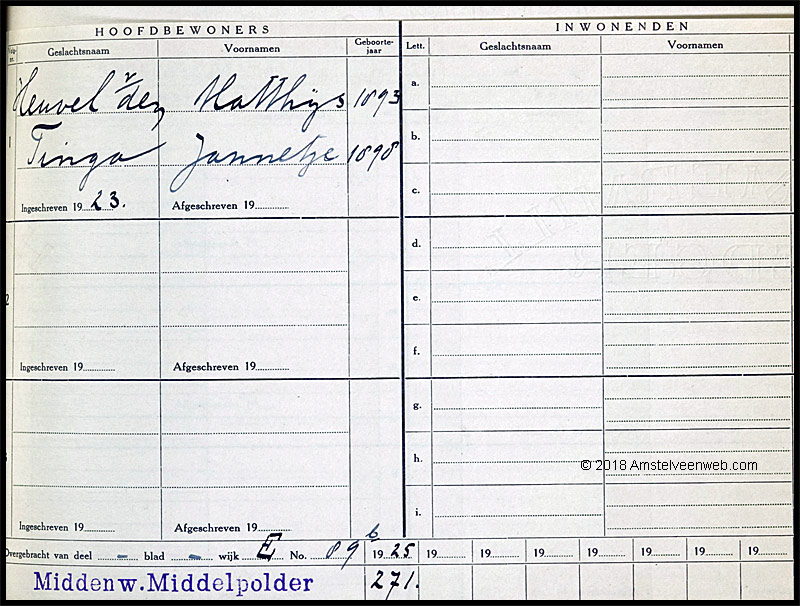 HOOFDBEWONERS
INWONENDEN
Geslachtsnaam Voornamen Geboorte-jaar Lett. Geslachtsnaam Voornamen
Heuvel v/den Matthijs 1893 a.
1 Tinga Jannetje 1898 b.
c.
Ingeschreven 19 23. Afgeschreven 19
d.
2 e.
f.
Ingeschreven 19 Afgeschreven 19
g.
h.
© 2018 Amstelveenweb.com
i.
Ingeschreven 19 Afgeschreven 19
Overgebracht van deel – blad – wijk E No. 89 b 19 25 19 19 19 19 19 19 19
Middenw. Middelpolder 271.